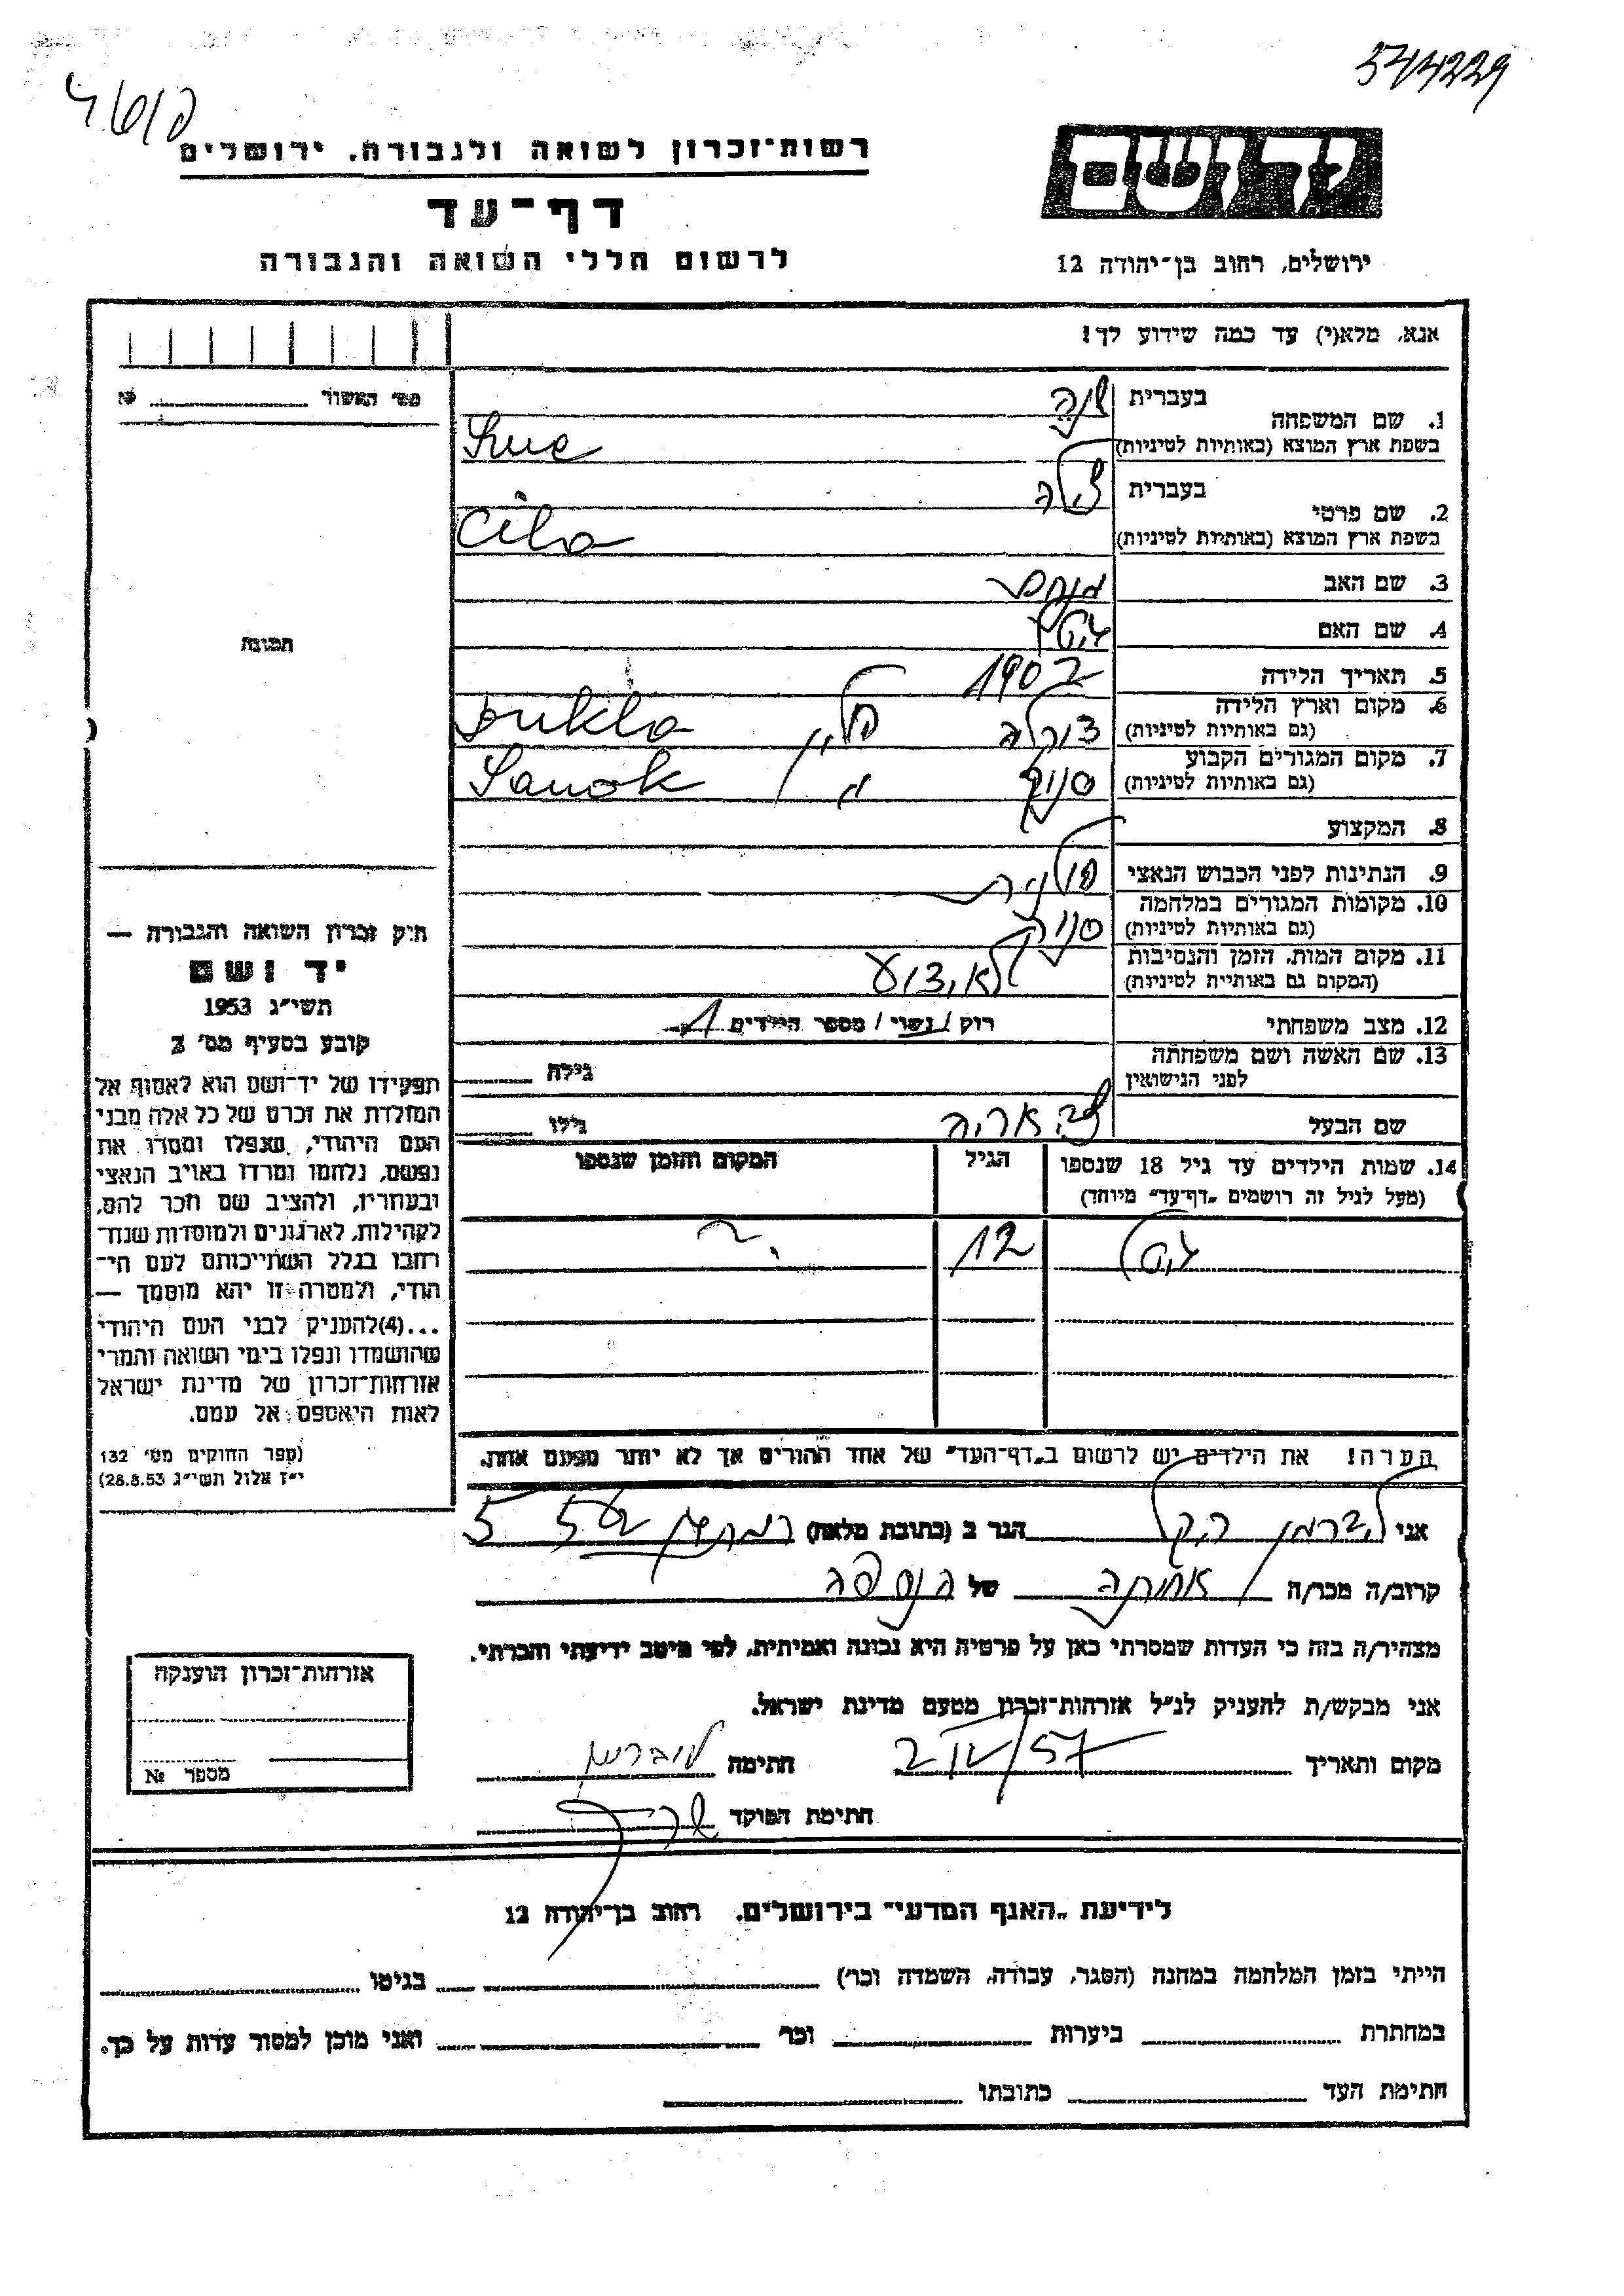 544229
רשות־זכרון לשואה ולגבורה. ירושלים
יד ושם
דף־עד
לרשום חללי השואה והגבורה
ירושלים, רחוב בן־יהודה 12
אנא, מלא(י) עד כמה שידוע לך!
מס׳ האשור № 
1. שם המשפחה
בעברית
בשפת ארץ המוצא (באותיות לטיניות)
2. שם פרטי
בעברית צילה
בשפת ארץ המוצא (באותיות לטיניות) Cila
3. שם האב מנחם
4. שם האם
5. תאריך הלידה 1902
6. מקום וארץ הלידה דוקלה פולין Dukla
(גם באותיות לטיניות)
7. מקום המגורים הקבוע סנוק " Sanok
(גם באותיות לטיניות)
8. המקצוע
9. הנתינות לפני הכבוש הנאצי פולנית
10. מקומות המגורים במלחמה סנוק
(גם באותיות לטיניות)
11. מקום המות, הזמן והנסיבות לא ידוע
(המקום גם באותיות לטיניות)
12. מצב משפחתי רוק / נשוי / מספר הילדים 1
13. שם האשה ושם משפחתה
לפני הנישואין
גילה
שם הבעל אריה
גילו
14. שמות הילדים עד גיל 18 שנספו
(מעל לגיל זה רושמים „דף־עד” מיוחד)
הגיל
המקום והזמן שנספו
12 ?
תמונה
חוק זכרון השואה והגבורה —
יד ושם
תשי״ג 1953
קובע בסעיף מס׳ 2
תפקידו של יד־ושם הוא לאסוף אל
המולדת את זכרם של כל אלה מבני
העם היהודי, שנפלו ומסרו את
נפשם, נלחמו ומרדו באויב הנאצי
ובעוזריו, ולהציב שם וזכר להם,
לקהילות, לארגונים ולמוסדות שנח־
רחבו בגלל השתייכותם לעם הי־
הודי, ולמטרה זו יהא מוסמך —
...(4)להעניק לבני העם היהודי
שהושמדו ונפלו בימי השואה והמרי
אזרחות־זכרון של מדינת ישראל
לאות היאספם אל עמם.
(ספר החוקים מס׳ 132
י״ז אלול תשי״ג 28.8.53)
הערה! את הילדים יש לרשום ב„דף־העד” של אחד ההורים אך לא יותר מפעם אחת.
אני ליברמן רחל הגר ב (כתובת מלאה)
קרוב/ה מכר/ה אחותה של הנספה
מצהיר/ה בזה כי העדות שמסרתי כאן על פרטיה היא נכונה ואמיתית, לפי מיטב ידיעתי והכרתי.
אני מבקש/ת להעניק לנ״ל אזרחות־זכרון מטעם מדינת ישראל.
מקום ותאריך 2/IV/57 חתימה
חתימת הפוקד
אזרחות־זכרון הוענקה
מספר №
לידיעת „האגף המדעי” בירושלים. רחוב בן־יהודה 12
הייתי בזמן המלחמה במחנה (הסגר, עבודה, השמדה וכו׳) בגיטו
במחתרת ביערות וכו׳ ואני מוכן למסור עדות על כך.
חתימת העד כתובתו